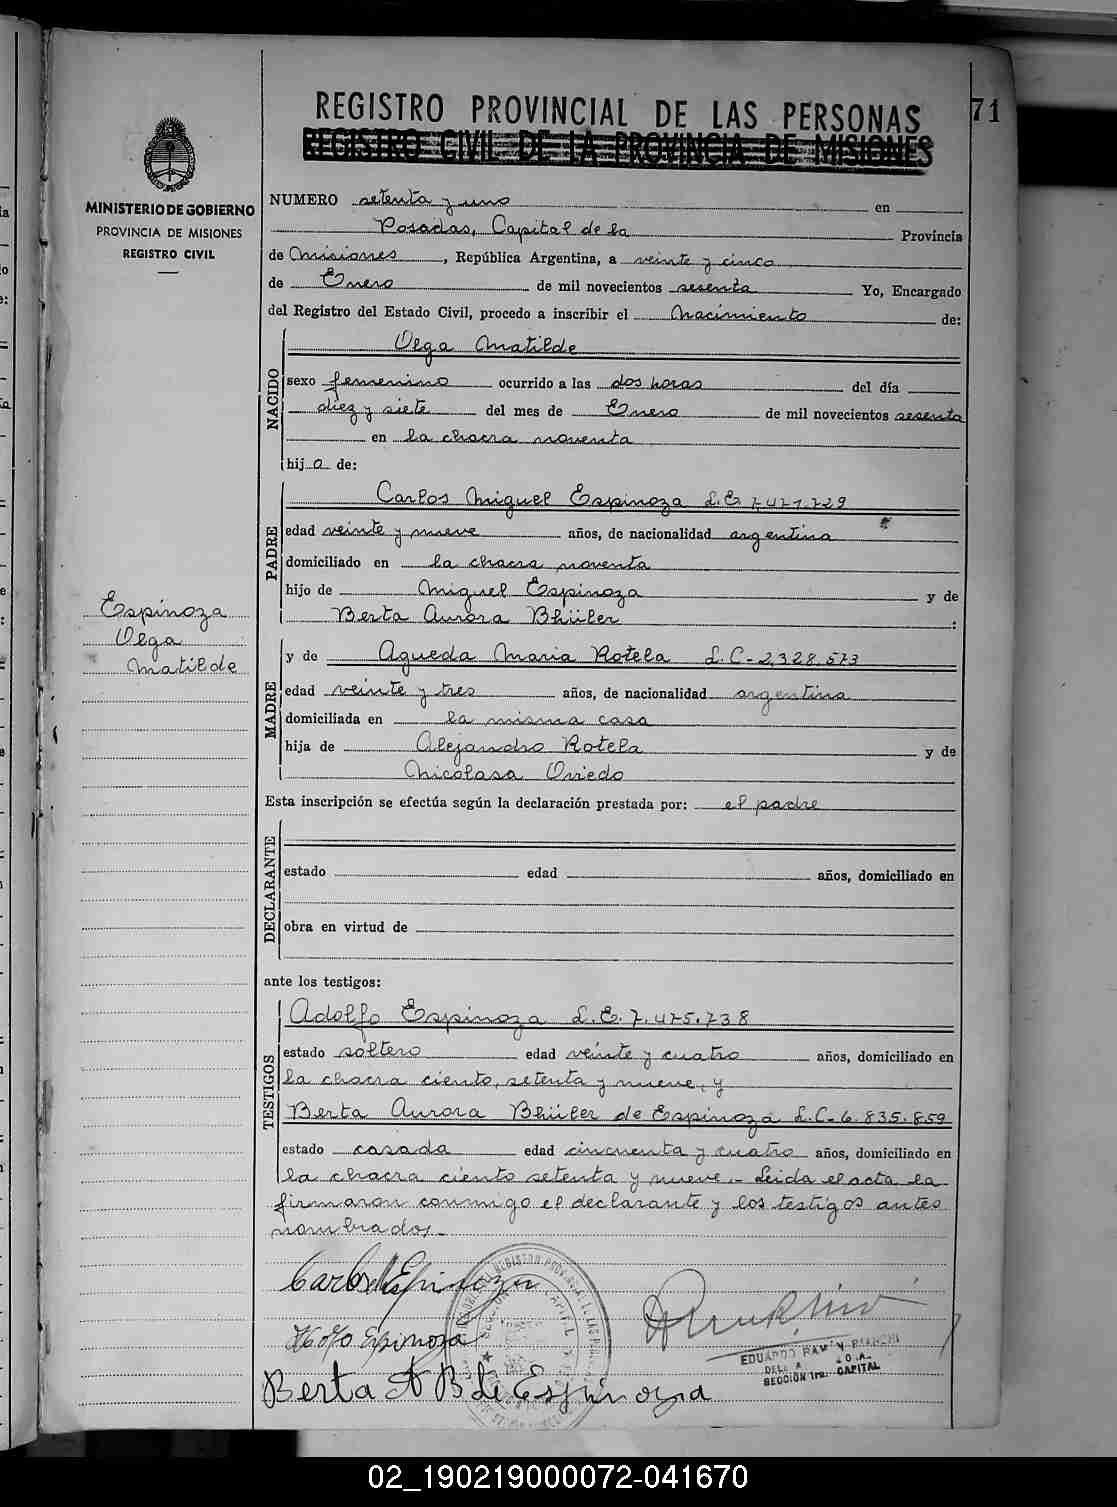 REGISTRO PROVINCIAL DE LAS PERSONAS
71
REGISTRO CIVIL DE LA PROVINCIA DE MISIONES
MINISTERIO DE GOBIERNO
PROVINCIA DE MISIONES
REGISTRO CIVIL
NUMERO setenta y uno en
Posadas, Capital de la Provincia
de Misiones, República Argentina, a veinte y cinco
de Enero de mil novecientos sesenta Yo, Encargado
del Registro del Estado Civil, procedo a inscribir el Nacimiento de:
NACIDO
Olga Matilde
sexo femenino ocurrido a las dos horas del día
diez y siete del mes de Enero de mil novecientos sesenta
en la chacra noventa
hija de:
PADRE
Carlos Miguel Espinoza L.E. 7.471.729
edad veinte y nueve años, de nacionalidad argentina
domiciliado en la chacra noventa
hijo de Miguel Espinoza y de
Berta Aurora Bhüler :
Espinoza
Olga
Matilde
MADRE
y de Agueda Maria Rotela L.C-2.328.573
edad veinte y tres años, de nacionalidad argentina
domiciliada en la misma casa
hija de Alejandro Rotela y de
Nicolasa Oviedo
Esta inscripción se efectúa según la declaración prestada por: el padre
DECLARANTE
estado edad años, domiciliado en
obra en virtud de
ante los testigos:
TESTIGOS
Adolfo Espinoza L.E. 7.475.738
estado soltero edad veinte y cuatro años, domiciliado en
la chacra ciento, setenta y nueve, y
Berta Aurora Bhüler de Espinoza L.C-6.835.859
estado casada edad cincuenta y cuatro años, domiciliado en
la chacra ciento setenta y nueve.- Leida el acta la
firmaron conmigo el declarante y los testigos antes
nombrados.-
Carlos M Espinoza
Espinoza
Berta A B de Espinoza
EDUARDO RAMÓN BIANCHI
SECCIÓN 1ra. CAPITAL
02_190219000072-041670